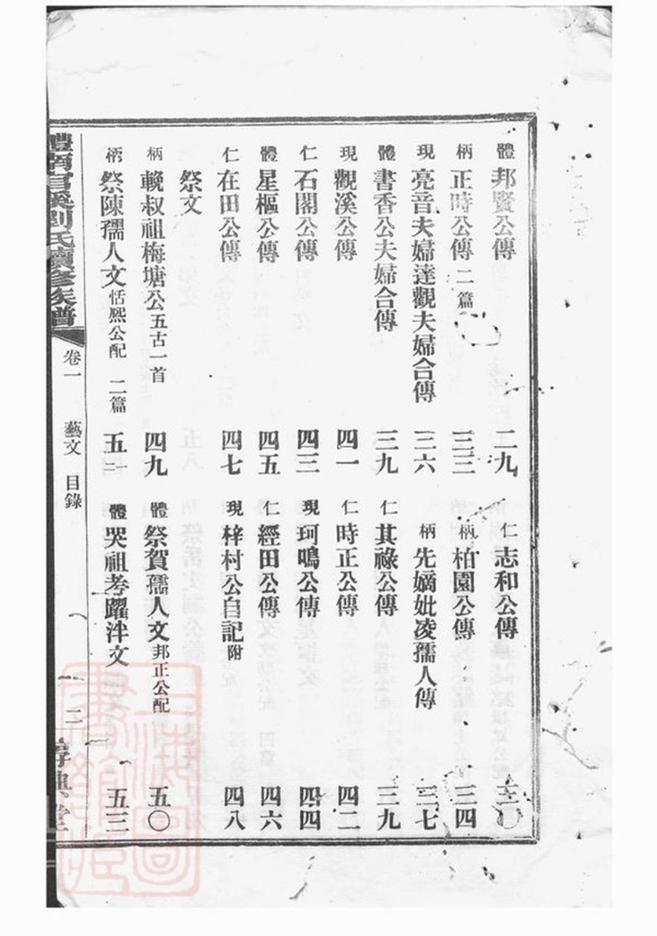 體 邦賢公傳 二九 仁 志和公傳 三〇
柄 正時公傳 二篇 三三 柄 柏園公傳 三四
現 亮音夫婦達觀夫婦合傳 三六 柄 先嫡妣凌孺人傳 三七
體 書香公夫婦合傳 三九 仁 其祿公傳 三九
現 觀溪公傳 四一 仁 時正公傳 四二
仁 石閣公傳 四三 現 珂鳴公傳 四四
體 星樞公傳 四五 仁 經田公傳 四六
仁 在田公傳 四七 現 梓村公自記 附 四八
祭文
柄 輓叔祖梅塘公 五古一首 四九 體 祭賀孺人文 邦正公配 五〇
柄 祭陳孺人文 恬熙公配 二篇 五一 體 哭祖考躍泮文 五三
劉氏續修族譜 卷一 藝文 目錄 二 堂